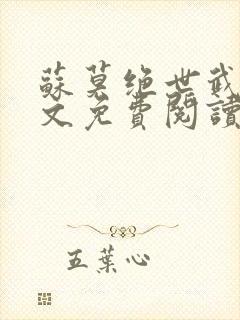 蘇莫绝世武
文免費閱讀
五葉心